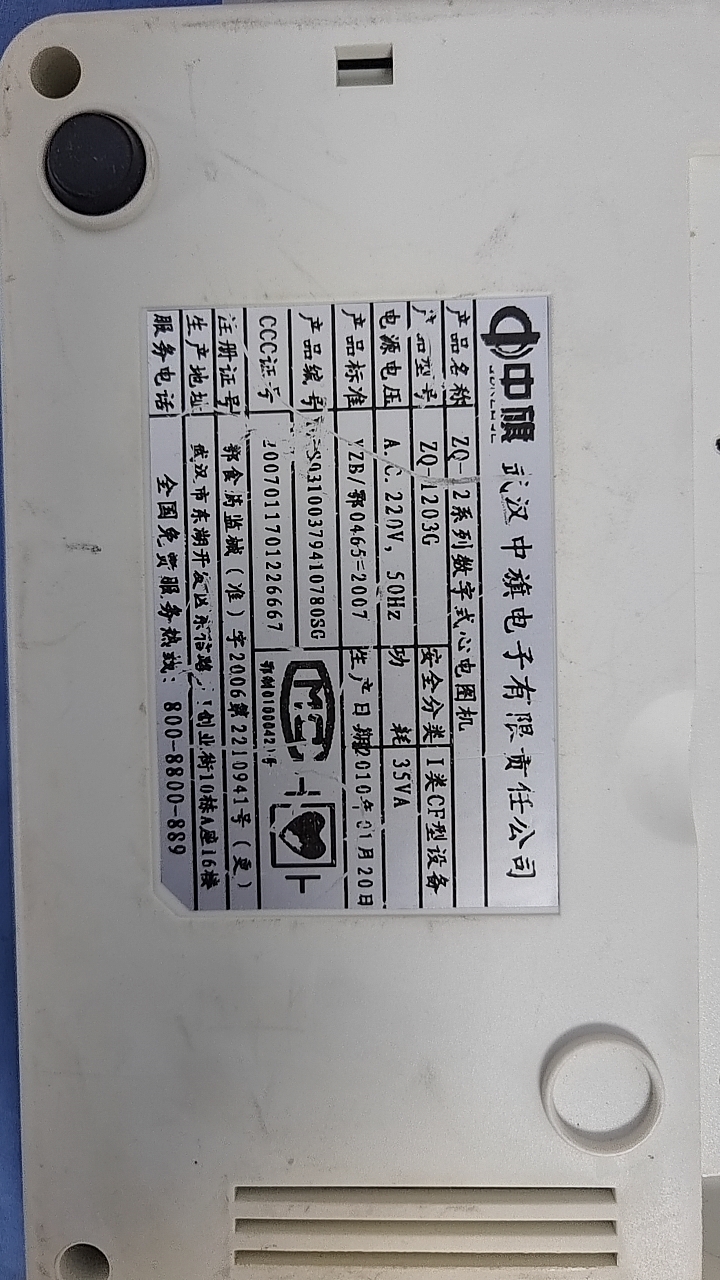 中旗 武汉中旗电子有限责任公司
产品名称 ZQ-12系列数字式心电图机
产品型号 ZQ-1203G 安全分类 I类CF型设备
电源电压 A.C. 220V, 50Hz 功 耗 35VA
产品标准 YZB/鄂0465-2007 生产日期 2010年01月20日
产品编号 03100379410780SG
CCC证号 2007011701226667
鄂制01000421号
注册证号 鄂食药监械(准)字2006第2210941号(更)
生产地址 武汉市东湖开发区东信路 创业街10栋A座16楼
服务电话 全国免费服务热线: 800-8800-889